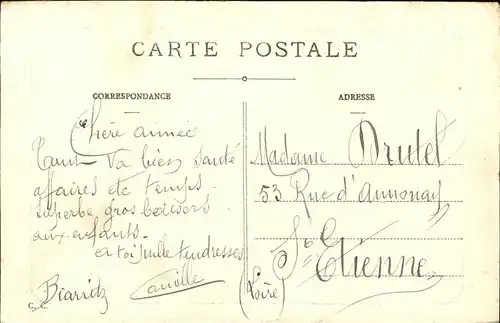 CARTE POSTALE
CORRESPONDANCE
Chère aimée
Tout va bien santé
affaires etc temps
superbe, gros baisers
aux enfants.
à toi mille tendresses
Camille
Biarritz
ADRESSE
Madame Brutel
53 Rue d'Annonay
St Etienne
(Loire)